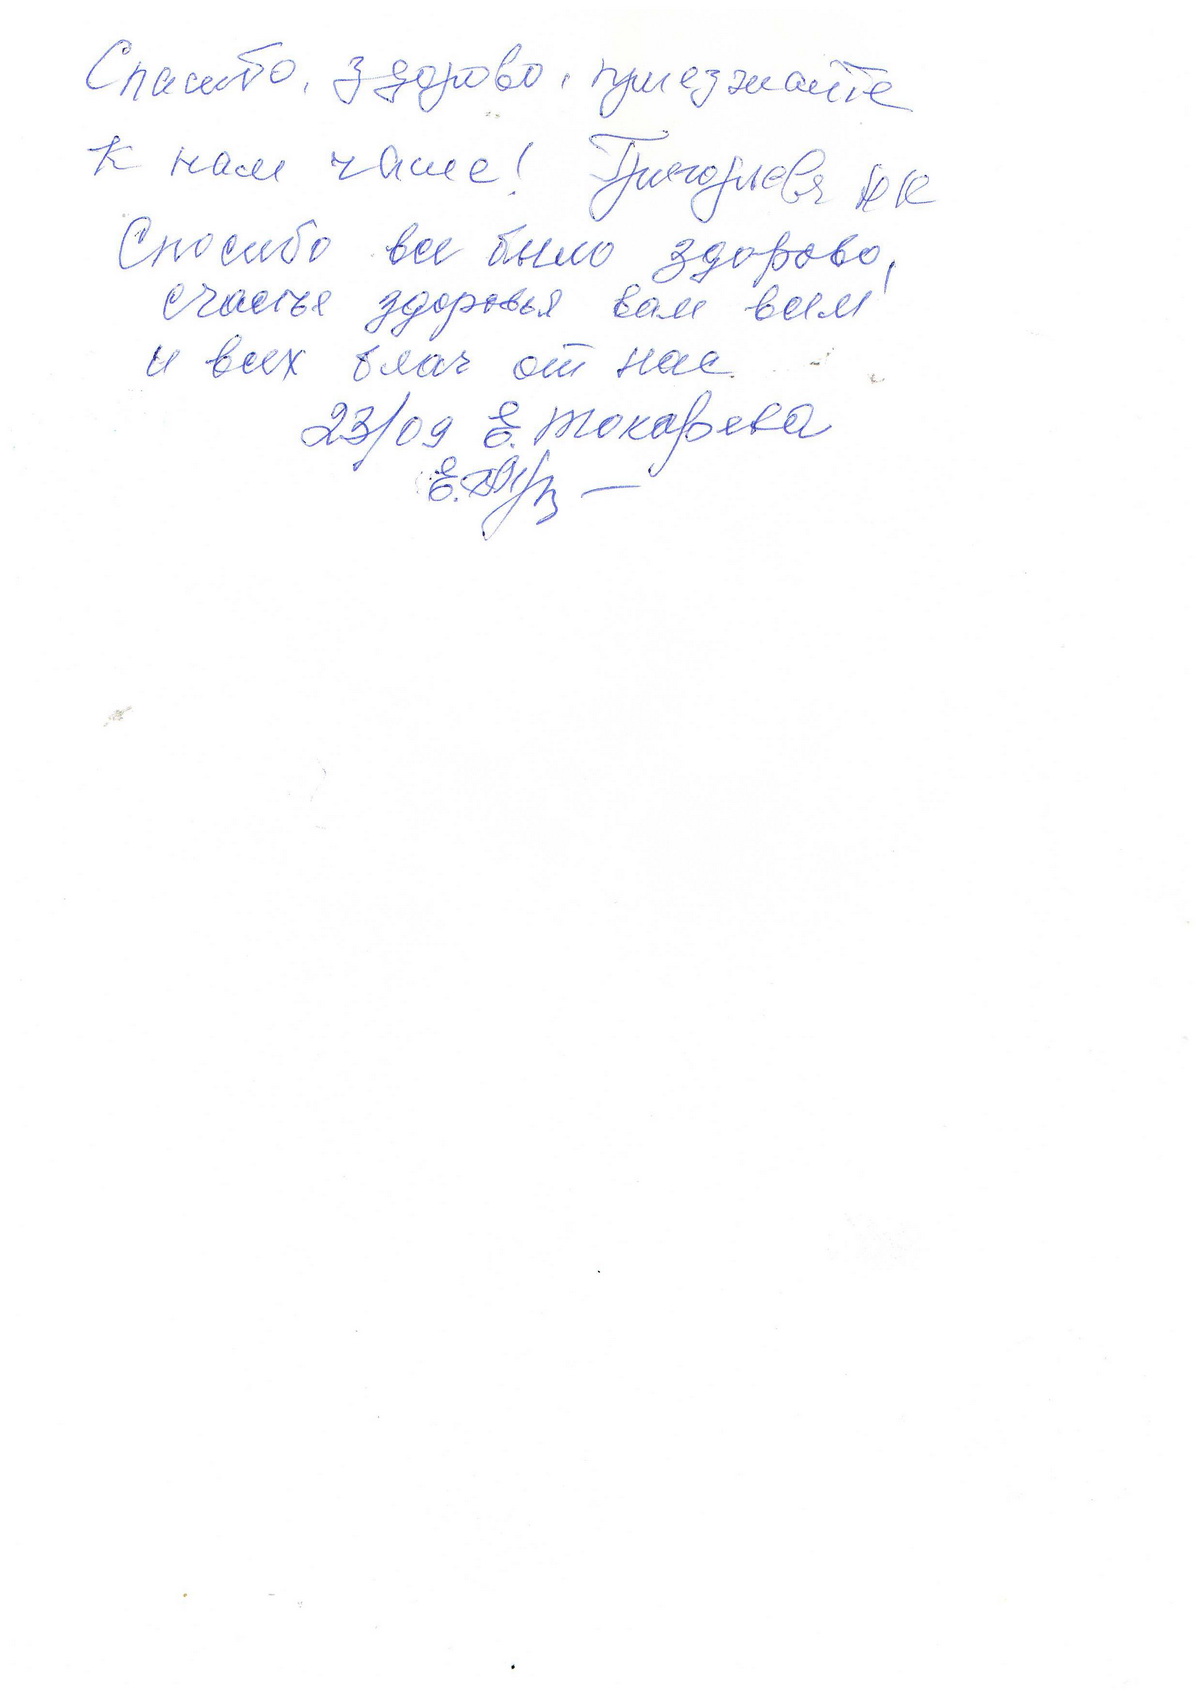 Спасибо, здорово, приезжайте
к нам чаще! Григорьева АК
Спосибо все было здорово,
счастье здоровья вам всем
и всех благ от нас
23/09 Е. Токарева